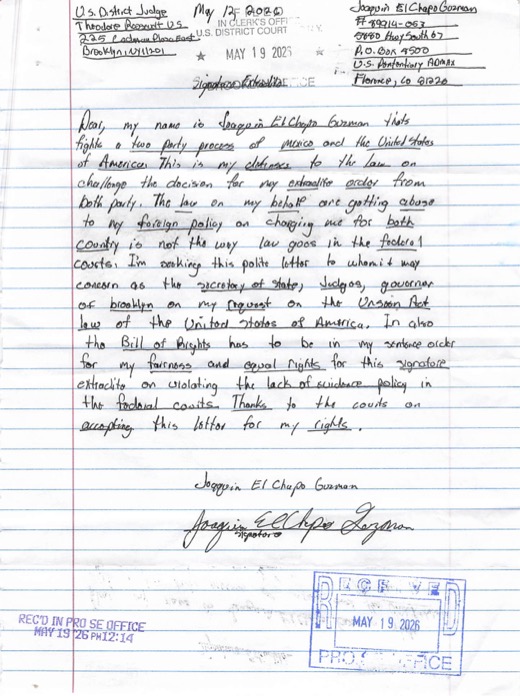 U.S. District Judge
Theodore Roosevelt U.S.
225 Cadman Plaza East
Brooklyn, NY 11201
May 12, 2026
IN CLERK'S OFFICE
U.S. DISTRICT COURT
★ MAY 19 2026 ★
OFFICE
Joaquin El Chapo Guzman
# 89914-053
5880 Hwy South 67
P.O. Box 8500
U.S. Penitentiary ADMAX
Florence, CO 81226
Signature Extradite
Dear, my name is Joaquin El Chapo Guzman thats
fights a two party process of mexico and the United States
of America. This is my defenses to the law on
challenge the decision for my extradite order from
both party. The law on my behalf are getting abuse
to my foreign policy on charging me for both
country is not the way law goes in the federal
courts. I'm seeking this polite letter to whom it may
concern as the secretary of state, Judges, governor
of brooklyn on my request on the Act
law of the United States of America. In also
the Bill of Rights has to be in my sentence order
for my fairness and equal rights for this signature
extradite on violating the lack of evidence policy in
the federal courts. Thanks to the courts on
accepting this letter for my rights.
Joaquin El Chapo Guzman
Joaquin El Chapo Guzman
signature
REC'D IN PRO SE OFFICE
MAY 19 '26 PM 12:14
RECEIVED
MAY 19 2026
PRO SE OFFICE